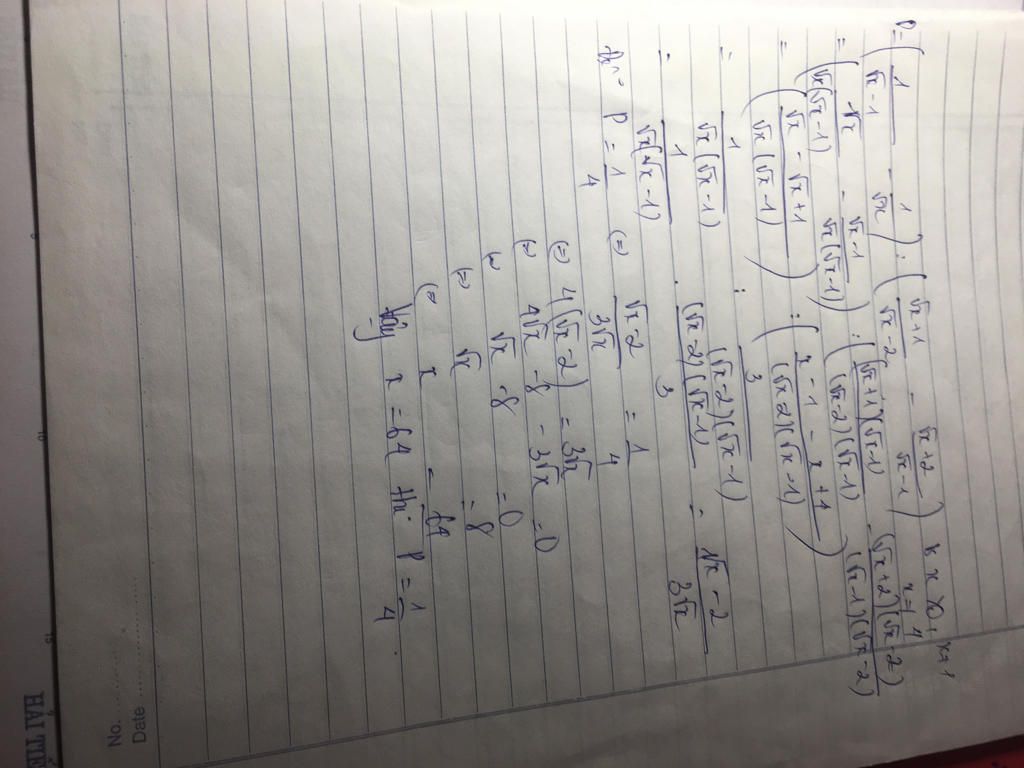 P = ( 1/(√x - 1) - 1/√x ) : ( (√x+1)/(√x-2) - (√x+2)/(√x-1) ) x > 0, x ≠ 1 x ≠ 4
= ( √x/(√x(√x-1)) - (√x-1)/(√x(√x-1)) ) : ( (√x+1)(√x-1)/((√x-2)(√x-1)) - (√x+2)(√x-2)/((√x-1)(√x-2)) )
= ( (√x - √x + 1)/(√x(√x-1)) ) : ( (x - 1 - x + 4)/((√x-2)(√x-1)) )
= 1/(√x(√x-1)) : 3/((√x-2)(√x-1))
= 1/(√x(√x-1)) . (√x-2)(√x-1)/3 = (√x-2)/(3√x)
P = 1/4 (=) (√x-2)/(3√x) = 1/4
(=) 4(√x-2) = 3√x
(=) 4√x - 8 - 3√x = 0
(=) √x - 8 = 0
(=) √x = 8
(=) x = 64
Vậy x = 64 thì P = 1/4
No.
Date
HẢI TIẾ